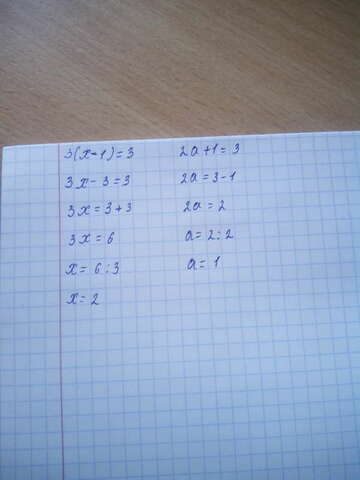 3(x-1)=3
3x-3=3
3x=3+3
3x=6
x=6:3
x=2
2a+1=3
2a=3-1
2a=2
a=2:2
a=1